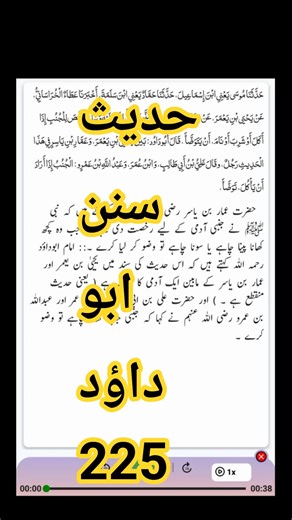 حَدَّثَنَا مُوسَى يَعْنِي ابْنَ إِسْمَاعِيلَ، حَدَّثَنَا حَمَّادٌ يَعْنِي ابْنَ سَلَمَةَ، أَخْبَرَنَا عَطَاءٌ الْخُرَاسَانِيُّ،
عَنْ يَحْيَى بْنِ يَعْمَرَ، عَنْ لِلْجُنُبِ إِذَا
أَكَلَ أَوْ شَرِبَ أَوْ نَامَ، أَنْ يَتَوَضَّأَ. قَالَ أَبُو دَاوُد: بَيْنَ يَعْمَرَ، وَعَمَّارِ بْنِ يَاسِرٍ فِي هَذَا
الْحَدِيثِ رَجُلٌ، وقَالَ عَلِيُّ بْنُ أَبِي طَالِبٍ، وَابْنُ عُمَرَ، وَعَبْدُ اللَّهِ بْنُ عَمْرٍو: الْجُنُبُ إِذَا أَرَادَ
أَنْ يَأْكُلَ، تَوَضَّأَ.
حدیث
حضرت عمار بن یاسر رضی کہ نبی
ﷺ نے جنبی آدمی کے لیے رخصت دی جب وہ کچھ
کھانا پینا چاہے یا سونا چاہے تو وضو کر لیا کرے ۔:: امام ابوداؤد
رحمہ اللہ کہتے ہیں کہ اس حدیث کی سند میں یحییٰ بن یعمر اور
عمار بن یاسر کے مابین ایک آدمی کا ہے ( یعنی حدیث
منقطع ہے ۔ ) اور حضرت علی بن عمر اور عبداللہ
بن عمرو رضی اللہ عنہم نے کہا کہ جنبی چاہے تو وضو
کرے ۔
سنن
ابو
داؤد
225
1x
00:00
00:38